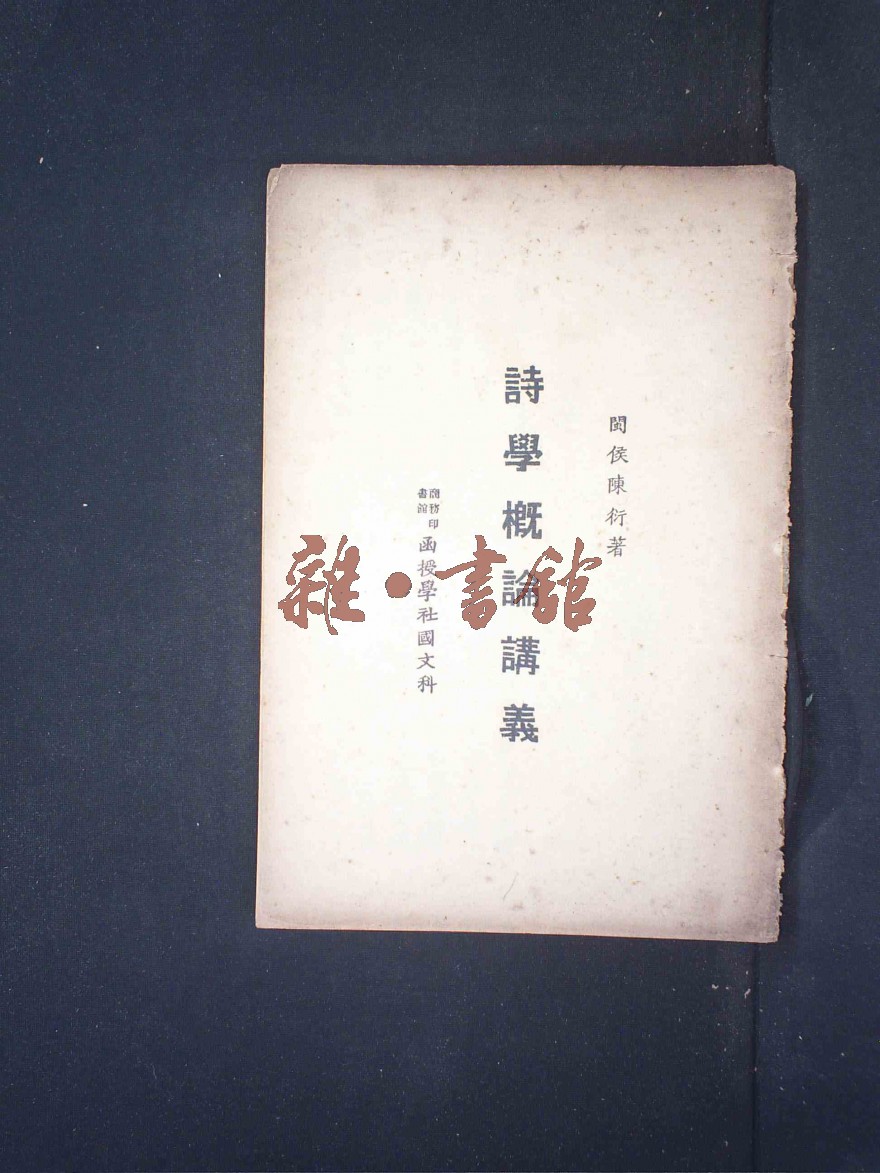 閩侯陳衍著
詩學概論講義
商務印書館
函授學社國文科
雜•書舘